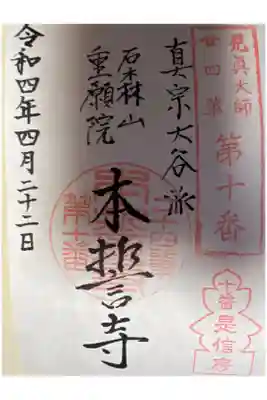 見真大師
廿四輩
第十番
真宗大谷派
石森山
重願院
本誓寺
令和四年四月二十二日
十番是信房
第十番